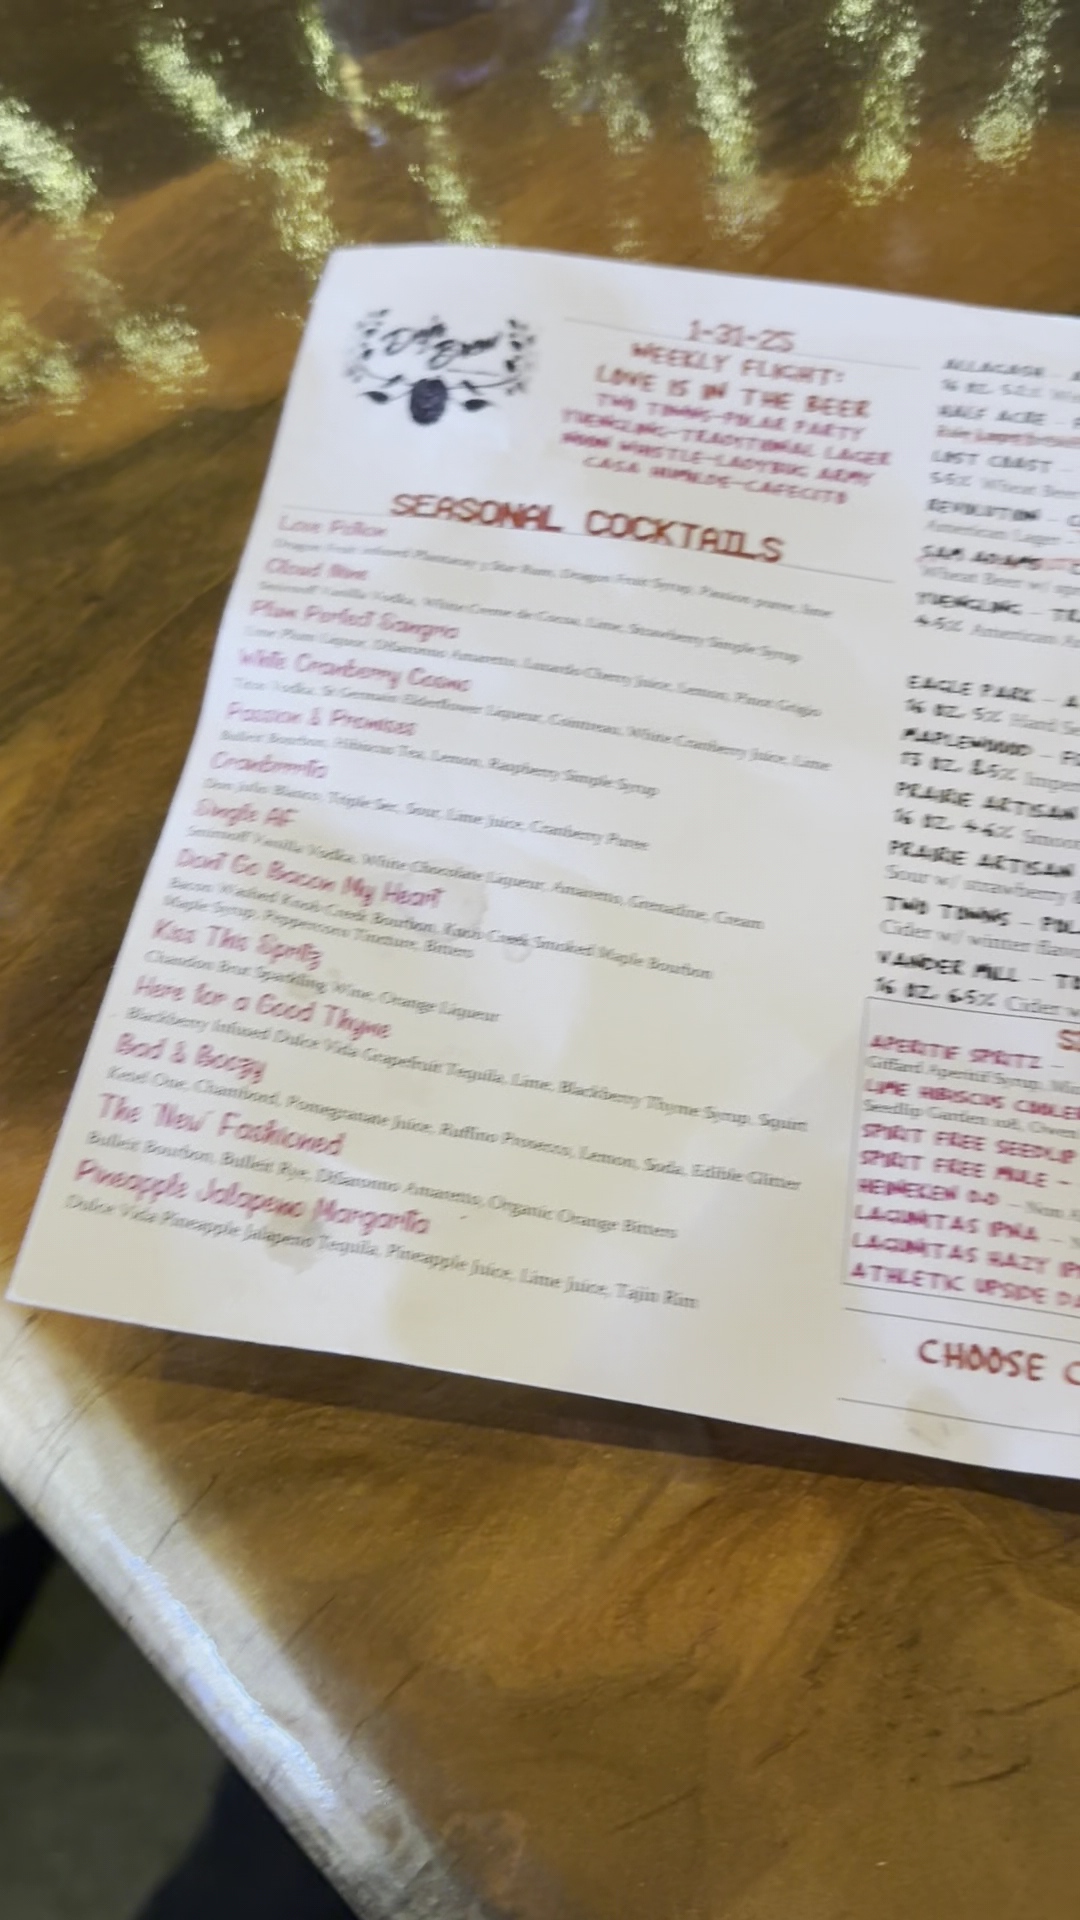 1-31-25
WEEKLY FLIGHT:
LOVE IS IN THE BEER
TWO TOWNS-POLAR PARTY
YUENGLING-TRADITIONAL LAGER
NOON WHISTLE-LADYBUG ARMY
CASA HUMILDE-CAFECITO
SEASONAL COCKTAILS
Love Potion
Dragon Fruit infused Plantaray 3 Star Rum, Dragon Fruit Syrup, Passion puree, lime
Cloud Nine
Smirnoff Vanilla Vodka, White Creme de Cocoa, Lime, Strawberry Simple Syrup
Plum Perfect Sangria
Plum Liqueur, DiSaronno Amaretto, Luxardo Cherry Juice, Lemon, Pinot Grigio
White Cranberry Cosmo
Titos Vodka, St Germain Elderflower Liqueur, Cointreau, White Cranberry Juice, Lime
Passion & Promises
Bulleit Bourbon, Hibiscus Tea, Lemon, Raspberry Simple Syrup
Cranberrita
Don Julio Blanco, Triple Sec, Sour, Lime Juice, Cranberry Puree
Single AF
Smirnoff Vanilla Vodka, White Chocolate Liqueur, Amaretto, Grenadine, Cream
Don't Go Bacon My Heart
Bacon Washed Knob Creek Bourbon, Knob Creek Smoked Maple Bourbon
Maple Syrup, Peppercorn Tincture, Bitters
Kiss This Spritz
Chandon Brut Sparkling Wine, Orange Liqueur
Here for a Good Thyme
Blackberry Infused Dulce Vida Grapefruit Tequila, Lime, Blackberry Thyme Syrup, Squirt
Bad & Boozy
Ketel One, Chambord, Pomegranate Juice, Ruffino Prosecco, Lemon, Soda, Edible Glitter
The 'New' Fashioned
Bulleit Bourbon, Bulleit Rye, DiSaronno Amaretto, Organic Orange Bitters
Pineapple Jalapeno Margarita
Dulce Vida Pineapple Jalapeno Tequila, Pineapple Juice, Lime Juice, Tajin Rim
ALLAGASH - A
16 OZ. 5.2%
HALF ACRE -
LOST COAST -
5.5% Wheat Beer
REVOLUTION - C
American Lager
SAM ADAMS
Wheat Beer w/
YUENGLING - TR
4.5% American A
EAGLE PARK - A
16 OZ. 5% Hard Se
MAPLEWOOD - F
13 OZ. 8.5% Imper
PRAIRIE ARTISAN
16 OZ. 4.6% Smoo
PRAIRIE ARTISAN
Sour w/ strawberry
TWO TOWNS - POL
Cider w/ winter flavo
VANDER MILL - TO
16 OZ. 6.5% Cider w
APERITIF SPRITZ -
Giffard Aperitif Syrup,
LIME HIBISCUS COOLER
Seedlip Garden 108, Owen
SPIRIT FREE SEEDLIP
SPIRIT FREE MULE -
HEINEKEN 0.0 - Non A
LAGUNITAS IPNA -
LAGUNITAS HAZY IP
ATHLETIC UPSIDE DA
CHOOSE